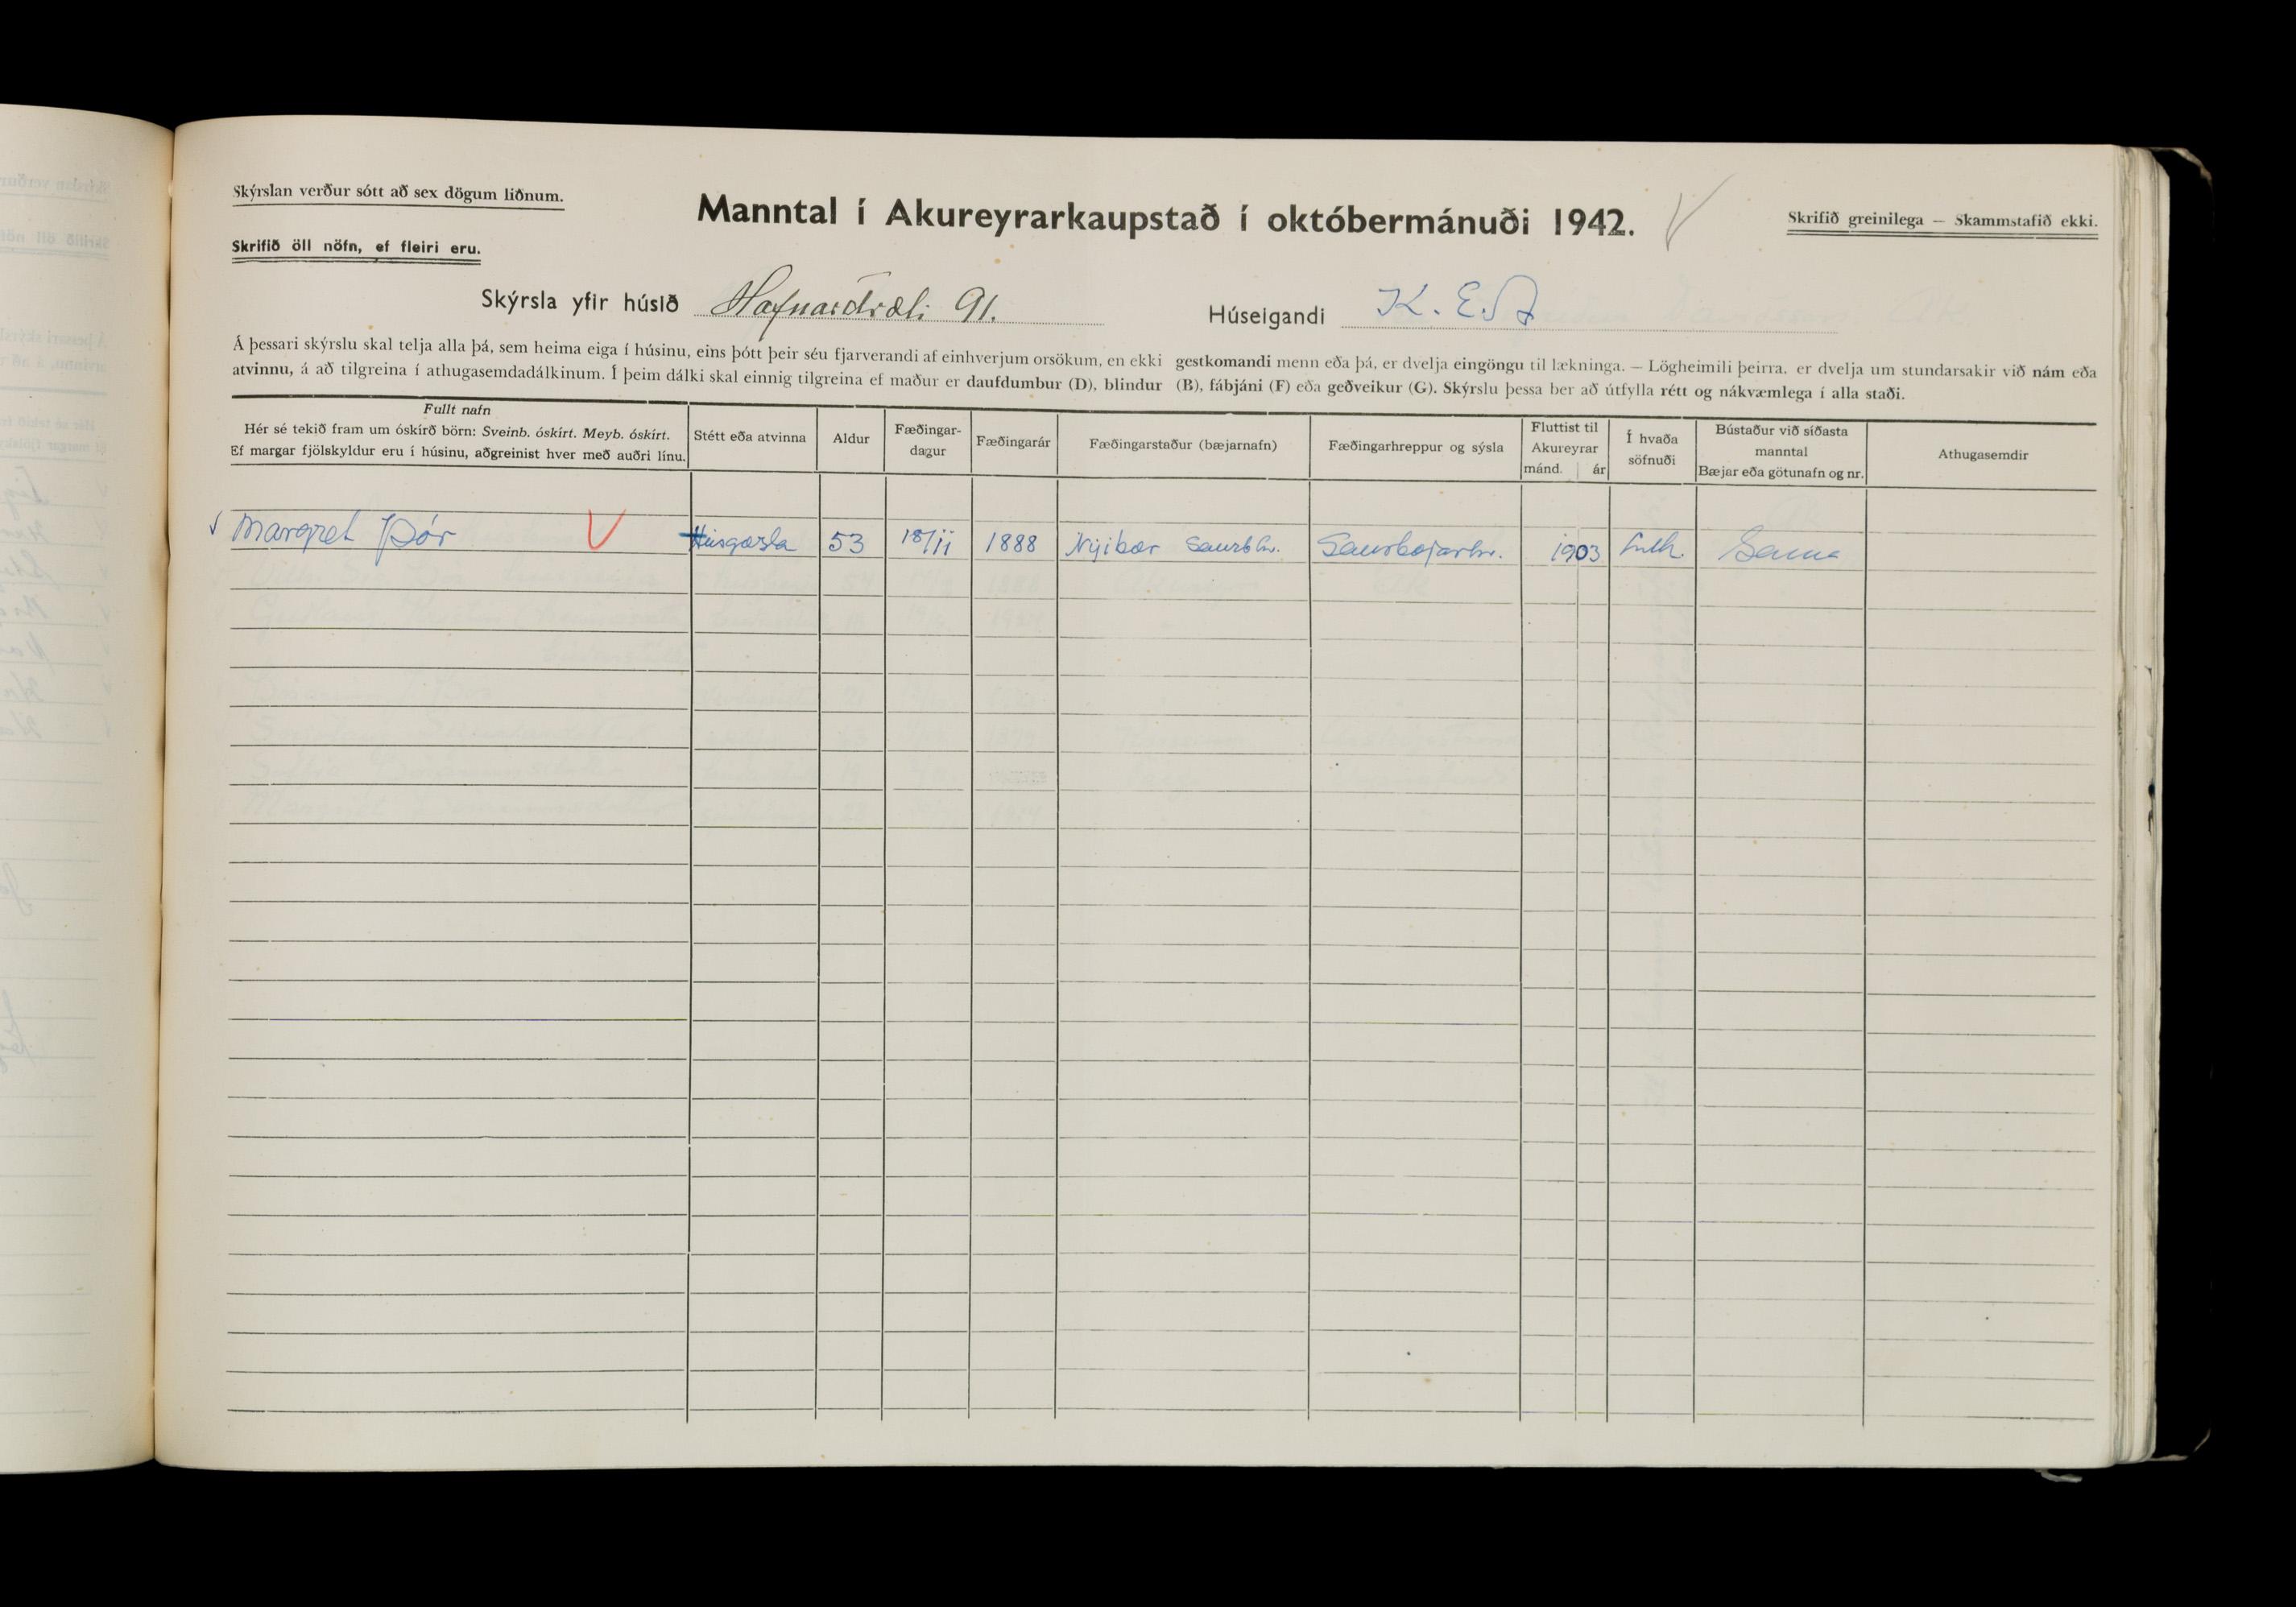 Skýrslan verður sótt að sex dögum liðnum.
Skrifið öll nöfn, ef fleiri eru.
Manntal í Akureyrarkaupstað í októbermánuði 1942.
Skrifið greinilega — Skammstafið ekki.
Skýrsla yfir húsið Hafnarstræti 91.
Húseigandi K. E. A
Á þessari skýrslu skal telja alla þá, sem heima eiga í húsinu, eins þótt þeir séu fjarverandi af einhverjum orsökum, en ekki gestkomandi menn eða þá, er dvelja eingöngu til lækninga. — Lögheimili þeirra. er dvelja um stundarsakir við nám eða
atvinnu, á að tilgreina í athugasemdadálkinum. Í þeim dálki skal einnig tilgreina ef maður er daufdumbur (D), blindur (B), fábjáni (F) eða geðveikur (G). Skýrslu þessa ber að útfylla rétt og nákvæmlega í alla staði.
Fullt nafn
Hér sé tekið fram um óskírð börn: Sveinb. óskírt. Meyb. óskírt.
Ef margar fjölskyldur eru í húsinu, aðgreinist hver með auðri línu.
Stétt eða atvinna
Aldur
Fæðingar-
dagur
Fæðingarár
Fæðingarstaður (bæjarnafn)
Fæðingarhreppur og sýsla
Fluttist til
Akureyrar
mánd. ár
Í hvaða
söfnuði
Bústaður við síðasta
manntal
Bæjar eða götunafn og nr.
Athugasemdir
Margret Þór Húsgæsla 53 18/11 1888 Nýibær Saurbhr. Saurbæjarhr. 1903 Luth. Sama